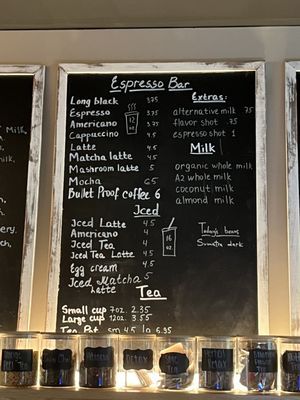 Espresso Bar
Long black 3.75
Espresso 3.75
Americano 3.75
Cappuccino 4.5
Latte 4.5
Matcha latte 4.5
Mashroom latte 5
Mocha 65
Bullet Proof coffee 6
12 oz
Iced
Iced Latte 4.5
Americano 4
Iced Tea 4
Iced Tea Latte 4.5
Egg cream 4.5
Iced Matcha 5
Latte
16 oz
Tea
Small cup 7oz. 2.35
Large cup 12oz. 3.55
Tea Pot sm 4.5 lg 6.95
Extras:
alternative milk .75
flavor shot .75
espresso shot 1
Milk
organic whole milk
A2 whole milk
coconut milk
almond milk
Today's beans
Sumatra dark
Milk,
milk,
Detox